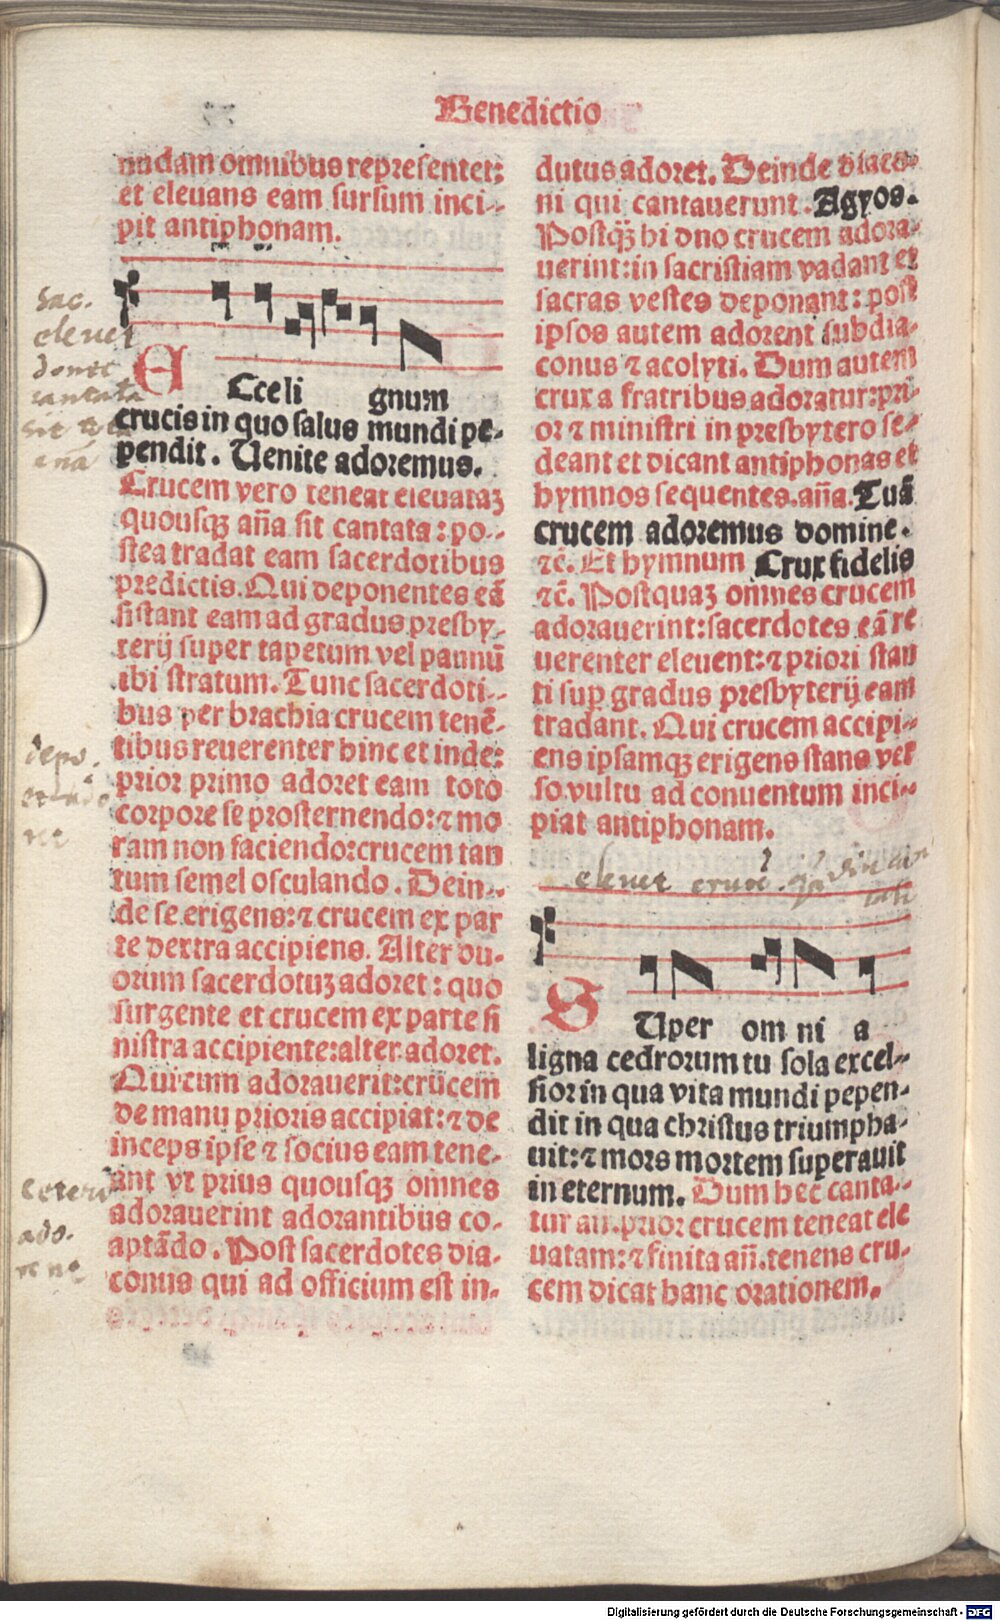 Benedictio
nudam omnibus representet:
et eleuans eam sursum inci-
pit antiphonam.
E Cce li gnum
crucis in quo salus mundi pe-
pendit. Uenite adoremus.
Crucem vero teneat eleuataꝫ
quousqꝫ aña sit cantata: po-
stea tradat eam sacerdotibus
predictis. Qui deponentes eã
sistant eam ad gradus presby-
terij super tapetum vel pannũ
ibi stratum. Tunc sacerdoti-
bus per brachia crucem tenẽ-
tibus reuerenter hinc et inde:
prior primo adoret eam toto
corpore se prosternendo: ⁊ mo
ram non faciendo: crucem tan
tum semel osculando. Dein-
de se erigens: ⁊ crucem ex par
te dextra accipiens. Alter du-
orum sacerdotuꝫ adoret: quo
surgente et crucem ex parte si
nistra accipiente: alter adoret.
Qui cum adorauerit: crucem
de manu prioris accipiat: ⁊ de
inceps ipse ⁊ socius eam tene-
ant vt prius quousqꝫ omnes
adorauerint adorantibus co-
aptãdo. Post sacerdotes dia-
conus qui ad officium est in-
dutus adoret. Deinde diaco-
ni qui cantauerunt. Agyos.
Postqꝫ̃ hi dno crucem adora-
uerint: in sacristiam vadant et
sacras vestes deponant: post
ipsos autem adorent subdia-
conus ⁊ acolyti. Dum autem
crux a fratribus adoratur: pri-
or ⁊ ministri in presbytero se-
deant et dicant antiphonas et
hymnos sequentes. aña. Tuã
crucem adoremus domine.
⁊c̃. Et hymnum Crux fidelis
⁊c̃. Postquaꝫ omnes crucem
adorauerint: sacerdotes eã re
uerenter eleuent: ⁊ priori stan
ti sup gradus presbyterij eam
tradant. Qui crucem accipi-
ens ipsamqꝫ erigens stans ver
so vultu ad conuentum inci-
piat antiphonam.
S Uper om ni a
ligna cedrorum tu sola excel-
sior in qua vita mundi pepen-
dit in qua christus triumpha-
uit: ⁊ mors mortem superauit
in eternum. Dum hec canta-
tur añ. prior crucem teneat ele
uatam: ⁊ finita añ. tenens cru-
cem dicat hanc orationem.
sac.
eleuet
donec
cantata
sit tot
aña
depo.
ceteri
ado.
eleuet
Digitalisierung gefördert durch die Deutsche Forschungsgemeinschaft - DFG